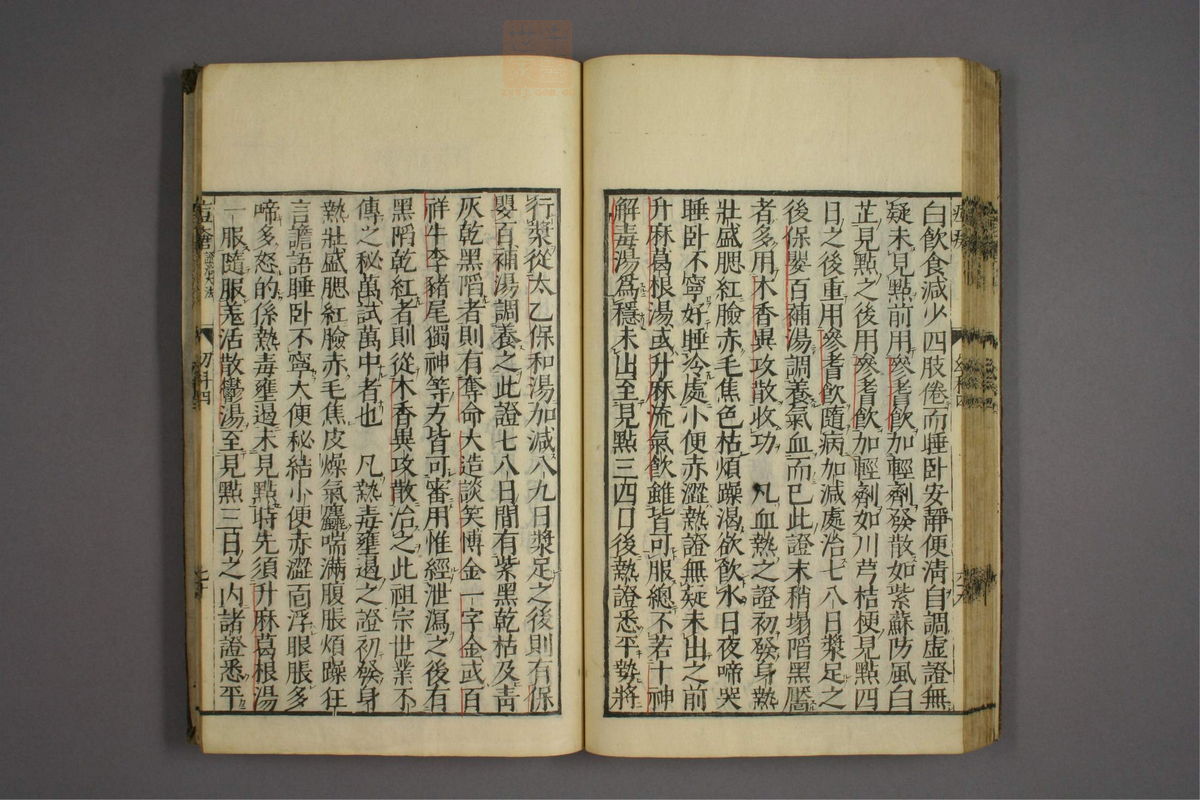 白飲食減少四肢倦而睡卧安靜便清自調虛證無
疑未見點前用參耆飲加輕劑發散如紫蘇防風白
芷見點之後用參耆飲加輕劑如川芎桔梗見點四
日之後重用參耆飲隨病加減處治七八日漿足之
後保嬰百補湯調養氣血而已此證末稍塌陷黑靨
者多用木香異攻散收功 凡血熱之證初發身熱
壯盛腮紅臉赤毛焦色枯煩躁渴欲飲水日夜啼哭
睡卧不寧好睡冷處小便赤澀熱證無疑未出之前
升麻葛根湯或升麻流氣飲雖皆可服總不若十神
解毒湯爲穩未出至見點三四日後熱證悉平勢將
行漿從太乙保和湯加減八九日漿足之後則有保
嬰百補湯調養之此證七八日間有紫黑乾枯及靑
灰乾黑陷者則有奪命大造談笑博金一字金武百
祥牛李豬尾獨神等方皆可審用惟經泄瀉之後有
黑陷乾紅者則從木香異攻散治之此祖宗世業不
傳之秘萬試萬中者也 凡熱毒壅遏之證初發身
熱壯盛腮紅臉赤毛焦皮燥氣麤喘滿腹脹煩躁狂
言譫語睡卧不寧大便秘結小便赤澀面浮眼脹多
啼多怒的係熱毒壅遏未見點時先須升麻葛根湯
一服隨服羗活散鬱湯至見點三日之內諸證悉平
幼科四
七十